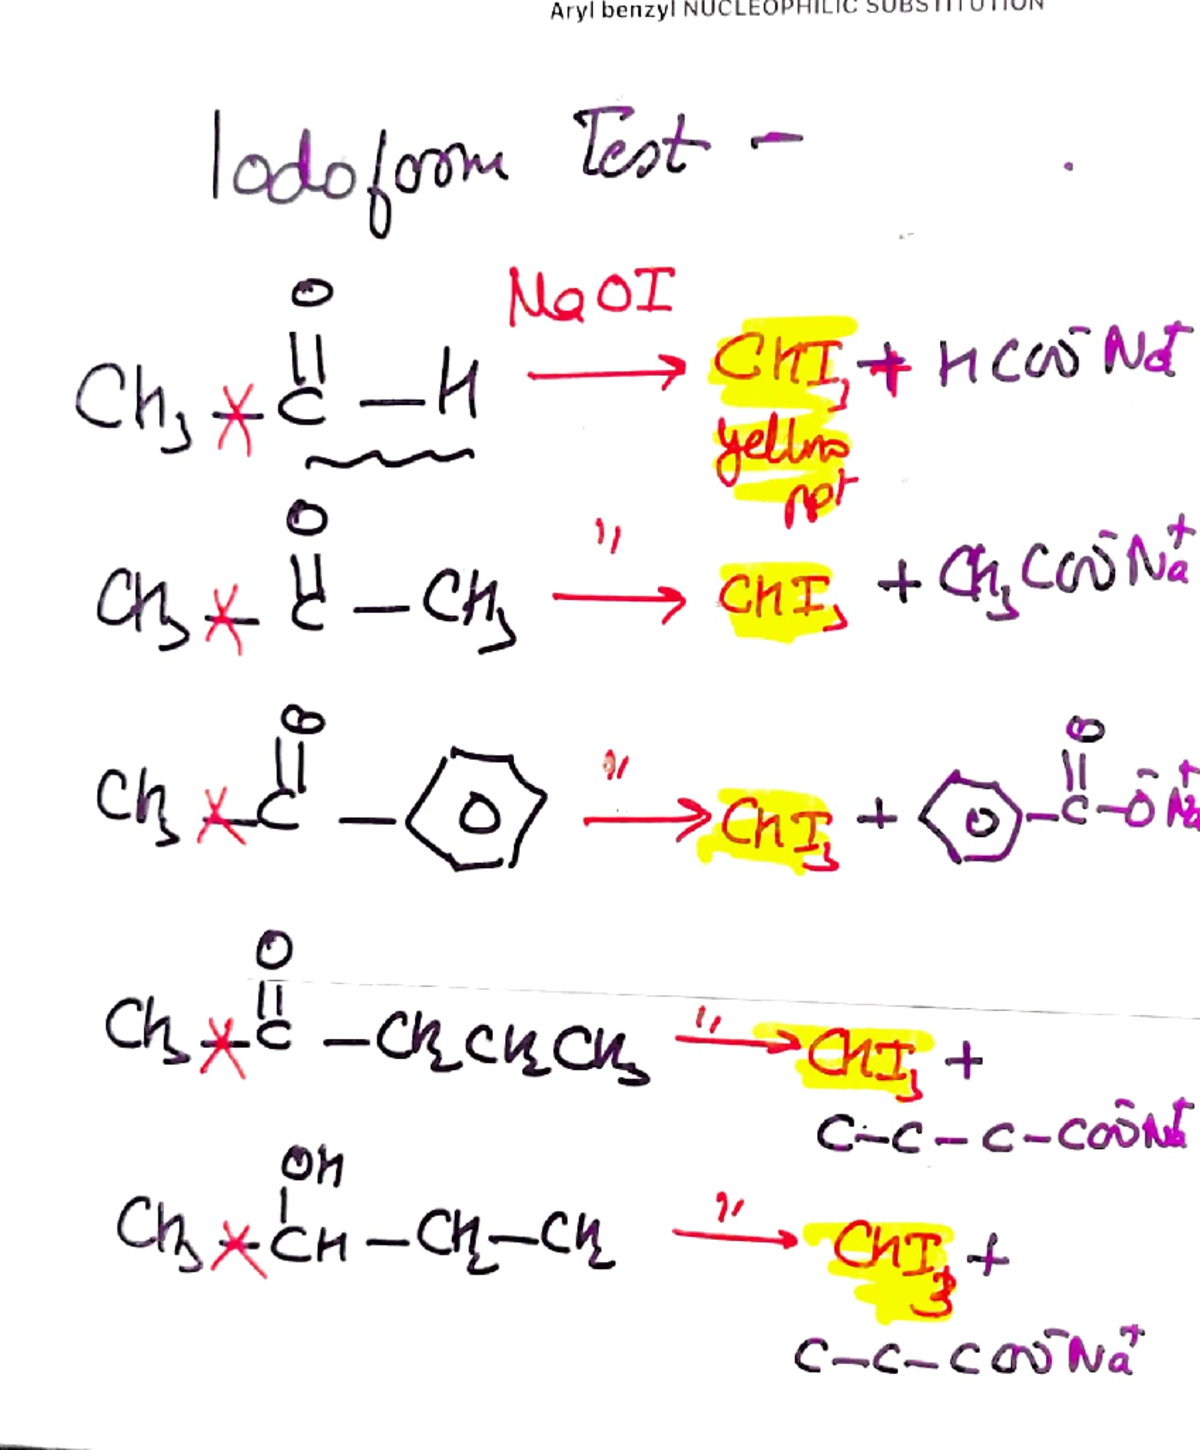 Aryl benzyl NUCLEOPHILIC SUBSTITUTION
Iodoform Test -
O
NaOI
CH3 - C - H → CHI3 + HCOO⁻ Na⁺
yellow
ppt
O
"
CH3 - C - CH3 → CHI3 + CH3COO⁻Na⁺
O
"
O
CH3 - C - → CHI3 + - C - O⁻ Na⁺
O
"
CH3 - C - CH2CH2CH3 → CHI3 +
C - C - C - COO⁻Na⁺
OH
"
CH3 - CH - CH2 - CH2 → CHI3 +
C - C - COO⁻Na⁺